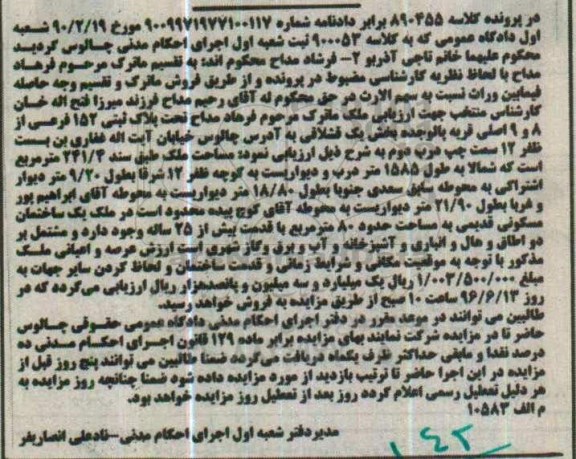 در پرونده کلاسه ۸۹۰۴۵۵ برابر دادنامه شماره ۹۰۰۹۹۷۱۹۷۷۱۰۰۱۱۷ مورخ ۹۰/۲/۱۹ شعبه
اول دادگاه عمومی که به کلاسه ۹۰۰۰۵۳ ثبت شعبه اول اجرای احکام مدنی چالوس گردید
محکوم علیهما خانم تاجی آذربو ۲- فرشاد مداح محکوم اند: به تقسیم ماترک مرحوم فرهاد
مداح با لحاظ نظریه کارشناسی مضبوط در پرونده و از طریق فروش ماترک و تقسیم وجه حاصله
فیمابین وراث نسبت به سهم الارث در حق محکوم له آقای رحیم مداح فرزند میرزا فتح اله خان
کارشناس منتخب جهت ارزیابی ملک ماترک مرحوم فرهاد مداح تحت پلاک ثبتی ۱۵۲ فرعی از
۸ و ۹ اصلی قریه پالوجده بخش یک قشلاقی به آدرس چالوس خیابان آیت اله غفاری بن بست
ظفر ۱۲ سمت چپ درب دوم به شرح ذیل ارزیابی نمود: مساحت ملک طبق سند ۲۴۱/۴ مترمربع
است که شمالا به طول ۱۵۸۵ متر درب و دیواریست به کوچه ظفر ۱۲ شرقا بطول ۹/۲۰ متر دیوار
اشتراکی به محوطه سابق سعدی جنوبا بطول ۱۸/۸۰ متر دیواریست به محوطه آقای ابراهیم پور
و غربا بطول ۲۱/۹۰ متر دیواریست به محوطه آقای کوچ پیده محدود است در ملک یک ساختمان
مسکونی قدیمی به مساحت حدود ۸۰ مترمربع با قدمت بیش از ۲۵ ساله وجود دارد و مشتمل بر
دو اطاق و هال و انباری و آشپزخانه و آب و برق وگاز شهری است ارزش عرصه و اعیانی ملک
مذکور با توجه به موقعیت مکانی و شرایط زمانی و قدمت ساختمان و لحاظ کردن سایر جهات به
مبلغ ۱/۰۰۳/۵۰۰/۰۰۰ ریال یک میلیارد و سه میلیون و پانصدهزار ریال ارزیابی می گردد که در
روز ۹۶/۶/۱۳ ساعت ۱۰ صبح از طریق مزایده به فروش خواهد رسید.
طالبین می توانند در موعد مقرر در دفتر اجرای احکام مدنی دادگاه عمومی حقوقی چالوس
حاضر تا در مزایده شرکت نمایند بهای مزایده برابر ماده ۱۲۹ قانون اجرای احکام مدنی ده
درصد نقدا و مابقی حداکثر ظرف یکماه دریافت می گردد ضمنا طالبین می توانند پنج روز قبل از
مزایده در این اجرا حاضر تا ترتیب بازدید از مورد مزایده داده شود ضمنا چنانچه روز مزایده به
هر دلیل تعطیل رسمی اعلام گردد روز بعد از تعطیل روز مزایده خواهد بود.
م الف ۱۰۵۸۳
مدیر دفتر شعبه اول اجرای احکام مدنی-نادعلی انصاریفر